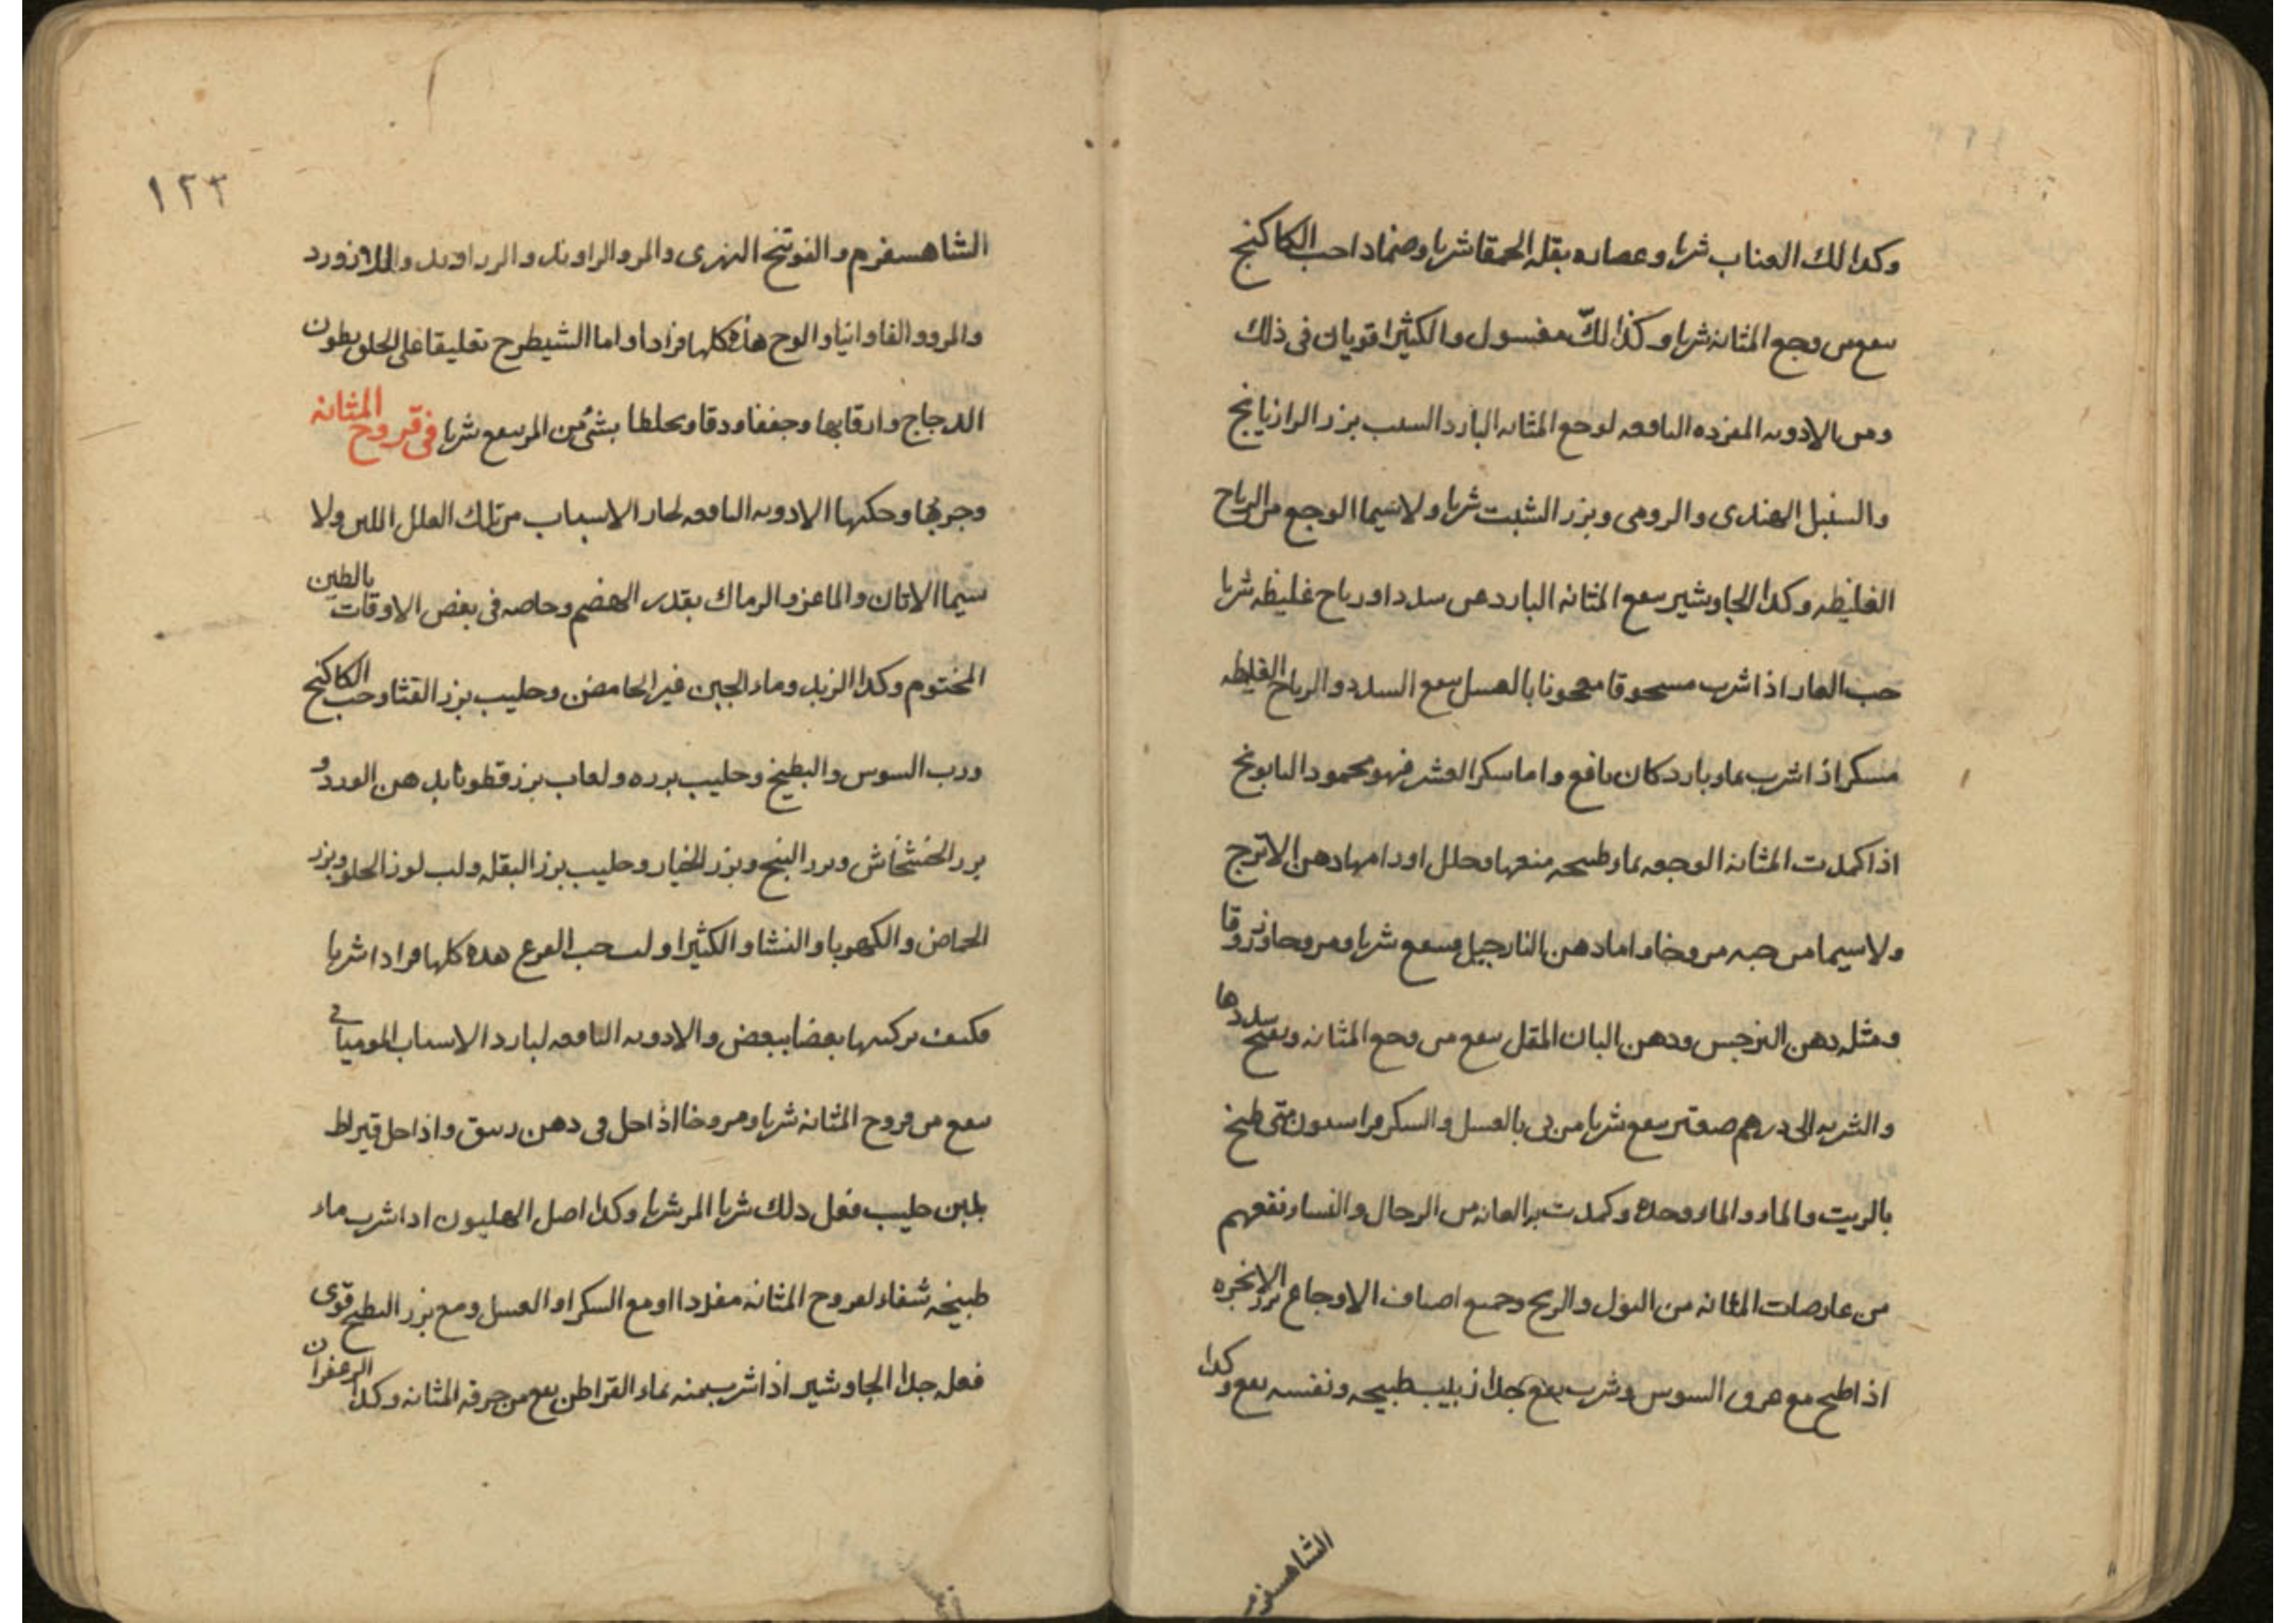 وكدا لك العناب شربا وعصاره بقله الحمقا شربا وضمادا حب الكاكنج
سعع من وجع المثانه شربا وكذا لكّ مغسول والكثيرا قويان فى ذلك
ومن الادويه المفرده النافعه لوجع المثانه البارد السبب بزر الرازيانج
والسنبل الهندى والرومى وبزر الشبت شربا ولا سيما الوجع من الرياح
الغليظه وكدا الجاوشير سعع المثانه البارده من سدد او رياح غليظه شربا
حب الغار اذا شرب مسحوقا معجونا بالعسل سعع السدد والرياح الغليظه
مسكر اذا شرب بماء بارد كان نافع واما سكر العشر فهو محمود البابونج
اذا كمدت المثانه الوجعه بماء طبيحه منعها وحلل اورامها دهن الاترج
ولا سيما من حبه مروخا واما دهن النارجيل فسعع شربا ومروحا وزروقا
ومثله دهن النرجس ودهن البان المقل سعع من وجع المثانه ويفتح سددها
والشربه الى درهم صعتر سعع شربا مربى بالعسل والسكر فراسيون متى طبخ
بالزيت والماء والماء وحده وكمدت به العانه من الرجال والنساء نفعهم
من عارضات المثانه من البول والريح وجميع اصناف الاوجاع بزر الانجره
اذا طبخ مع عروق السوس وشرب نفع جدا زبيب طبيحه ونفسه نفع وكدا
الشاهسفرم
١٢٣
الشاهسفرم والفوتنج النهرى والمر والراوند والزراوند واللازورد
والمرو والفاوانيا والوج هذه كلها فرادا واما الشيطرج تعليقا على الحلق بطون
الدجاج وارقابها وجففا ودقا ويخلطا بشئ من المر سعع شربا فى قروح المثانه
وجربها وحكتها الادويه النافعه لحار الاسباب من تلك العلل اللبن ولا
سيما الاتان والماعز والرماك بقدر الهضم وخاصه فى بعض الاوقات بالطين
المختوم وكدا الزبد وماء الجبن غير الحامض وحليب بزر القثا وحب الكاكنج
ورب السوس والبطيخ وحليب بزره ولعاب بزر قطونا بدهن الورد و
بزر الخشخاش وبزر البنج وبزر الخيار وحليب بزر البقله ولب لوز الحلو وبزر
الحماض والكهربا والنشا والكثيرا ولب حب القرع هده كلها فرادا شربا
فكيف تركيبها بعضا ببعض والادويه النافعه لبارد الاسباب الموميائى
سعع من قروح المثانه شربا ومروخا اذا حل فى دهن زنبق واذا حل قيراط
بلبن حليب فعل دلك شربا المر شربا وكدا اصل الهليون اذا شرب ماء
طبيخه شفاء لقروح المثانه مفردا او مع السكر او العسل ومع بزر البطيخ قوى
فعله جدا الجاوشير اذا شرب منه بماء القراطن نفع من حرقه المثانه وكدا الزعفران